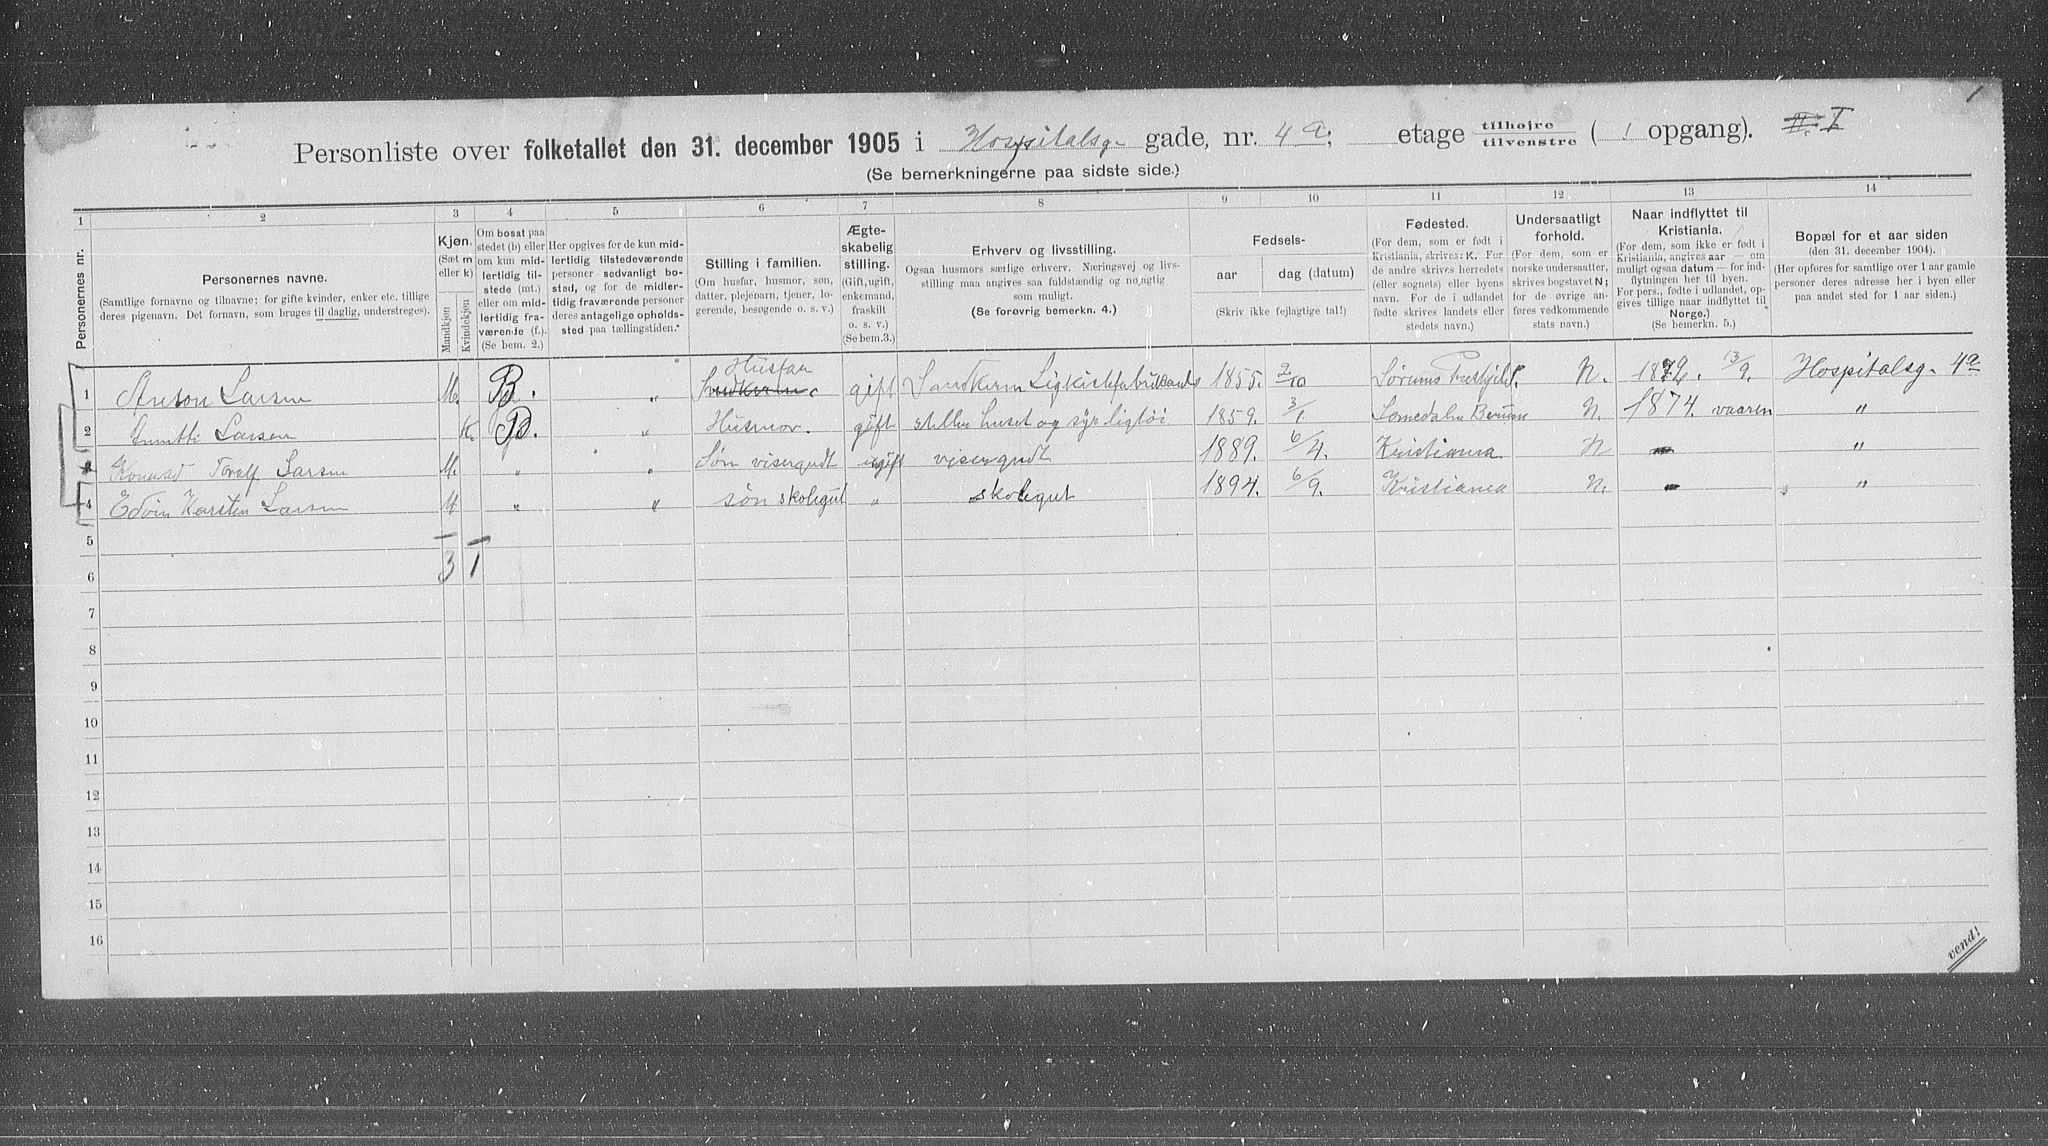 1
Personliste over folketallet den 31. december 1905 i Hospitalsg. gade, nr. 4 a; etage tilhøjre tilvenstre ( 1 opgang). I
(Se bemerkningerne paa sidste side.)
1 2 3 4 5 6 7 8 9 10 11 12 13 14
Personernes nr.
Personernes navne.
(Samtlige fornavne og tilnavne; for gifte kvinder, enker etc. tillige
deres pigenavn. Det fornavn, som bruges til daglig, understreges).
Kjøn.
(Sæt m
eller k)
Mandkjøn
Kvindekjøn
Om bosat paa
stedet (b) eller
om kun mid-
lertidig til-
stede (mt.)
eller om mid-
lertidig fra-
værende (f.).
(Se bem. 2.)
Her opgives for de kun mid-
lertidig tilstedeværende
personer sedvanligt bo-
sted, og for de midler-
tidig fraværende personer
deres antagelige opholds-
sted paa tællingstiden.
Stilling i familien.
(Om husfar, husmor, søn,
datter, plejebarn, tjener, lo-
gerende, besøgende o. s. v.)
Ægte-
skabelig
stilling.
(Gift, ugift,
enkemand,
fraskilt
o. s. v.)
(Se bem. 3.)
Erhverv og livsstilling.
Ogsaa husmors særlige erhverv. Næringsvej og livs-
stilling maa angives saa fuldstændig og nøjagtig
som muligt.
(Se forøvrig bemerkn. 4.)
Fødsels-
aar dag (datum)
(Skriv ikke fejlagtige tal!)
Fødested.
(For dem, som er født i
Kristiania, skrives: K. For
de andre skrives herredets
(eller sognets) eller byens
navn. For de i udlandet
fødte skrives landets eller
stedets navn.)
Undersaatligt
forhold.
(For dem, som er
norske undersaatter,
skrives bogstavet N;
for de øvrige an-
føres vedkommende
stats navn.)
Naar indflyttet til
Kristiania.
(For dem, som ikke er født i
Kristiania, angives aar — om
muligt ogsaa datum — for ind-
flytningen her til byen.
For pers., fødte i udlandet, op-
gives tillige naar indflyttet til
Norge.)
(Se bemerkn. 5.)
Bopæl for et aar siden
(den 31. december 1904).
(Her opføres for samtlige over 1 aar gamle
personer deres adresse her i byen eller
paa andet sted for 1 aar siden.)
Husfar
1 Anton Larsen M. B. " gift Sandkrem Ligkistefabrikands 1855. 2/10 Sørums Prestgjeld. N. 1872. 13/9. Hospitalsg. 4a
2 Larsen K. B. " Husmor. gift steller huset og syr ligtøi 1859. 3/1 Bærum N. 1874. vaaren "
3 Konrad Toralf Larsen M. " " Søn visergudt ugift visergudt 1889. 6/4. Kristiania N "
4 Edvin Karsten Larsen M " " søn skolegut " skolegut 1894. 6/9. Kristiania N. "
5
3 1
6
7
8
9
10
11
12
13
14
15
16
vend!